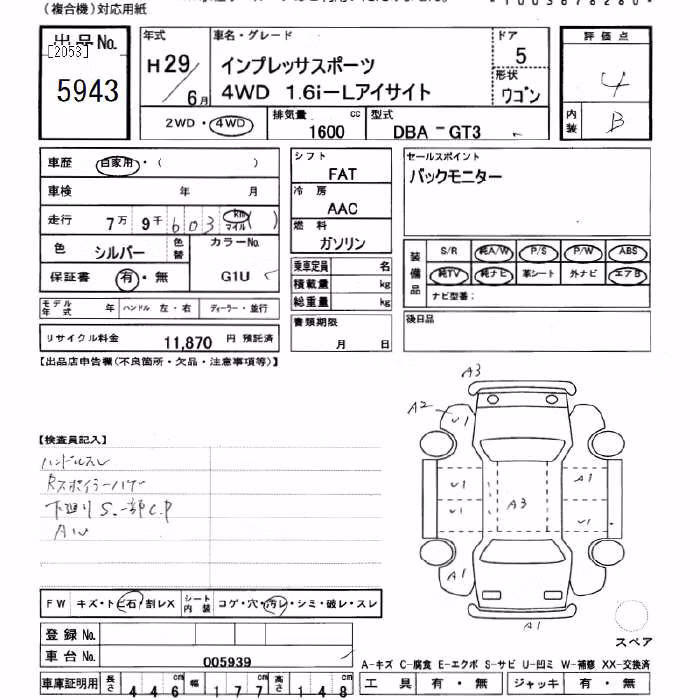 (複合機)対応用紙
出品No.
[2053]
5943
年式
H29/6月
車名・グレード
インプレッサスポーツ
4WD 1.6i-Lアイサイト
ドア
5
形状
ワゴン
評価点
4
内装
B
2WD・4WD
排気量
1600 cc
型式
DBA-GT3
車歴
自家用・( )
車検 年 月
走行 7万9千603 km マイル ( )
色 シルバー 色替
カラーNo.
G1U
保証書 有・無
モデル年式 年 ハンドル 左・右 ディーラー・並行
リサイクル料金 11,870 円 預託済
シフト
FAT
冷房
AAC
燃料
ガソリン
乗車定員 名
積載量 kg
総重量 kg
書類期限
月 日
セールスポイント
バックモニター
装備品
S/R 純A/W P/S P/W ABS
純TV 純ナビ 革シート 外ナビ エアB
ナビ型番:
後日品
【出品店申告欄(不良箇所・欠品・注意事項等)】
【検査員記入】
ハンドルスレ
下廻りS.一部C.P
AW
A3
A2
U1
U1
A1
A3
U1
U1
A1
A1
A1
FW キズ・トビ石・割レX
シート内装 コゲ・穴・汚レ・シミ・破レ・スレ
登録No.
車台No. 005939
車庫証明用 長さ 446 cm 幅 177 cm 高さ 148 cm
スペア
A-キズ C-腐食 E-エクボ S-サビ U-凹ミ W-補修 XX-交換済
工具 有・無 ジャッキ 有・無